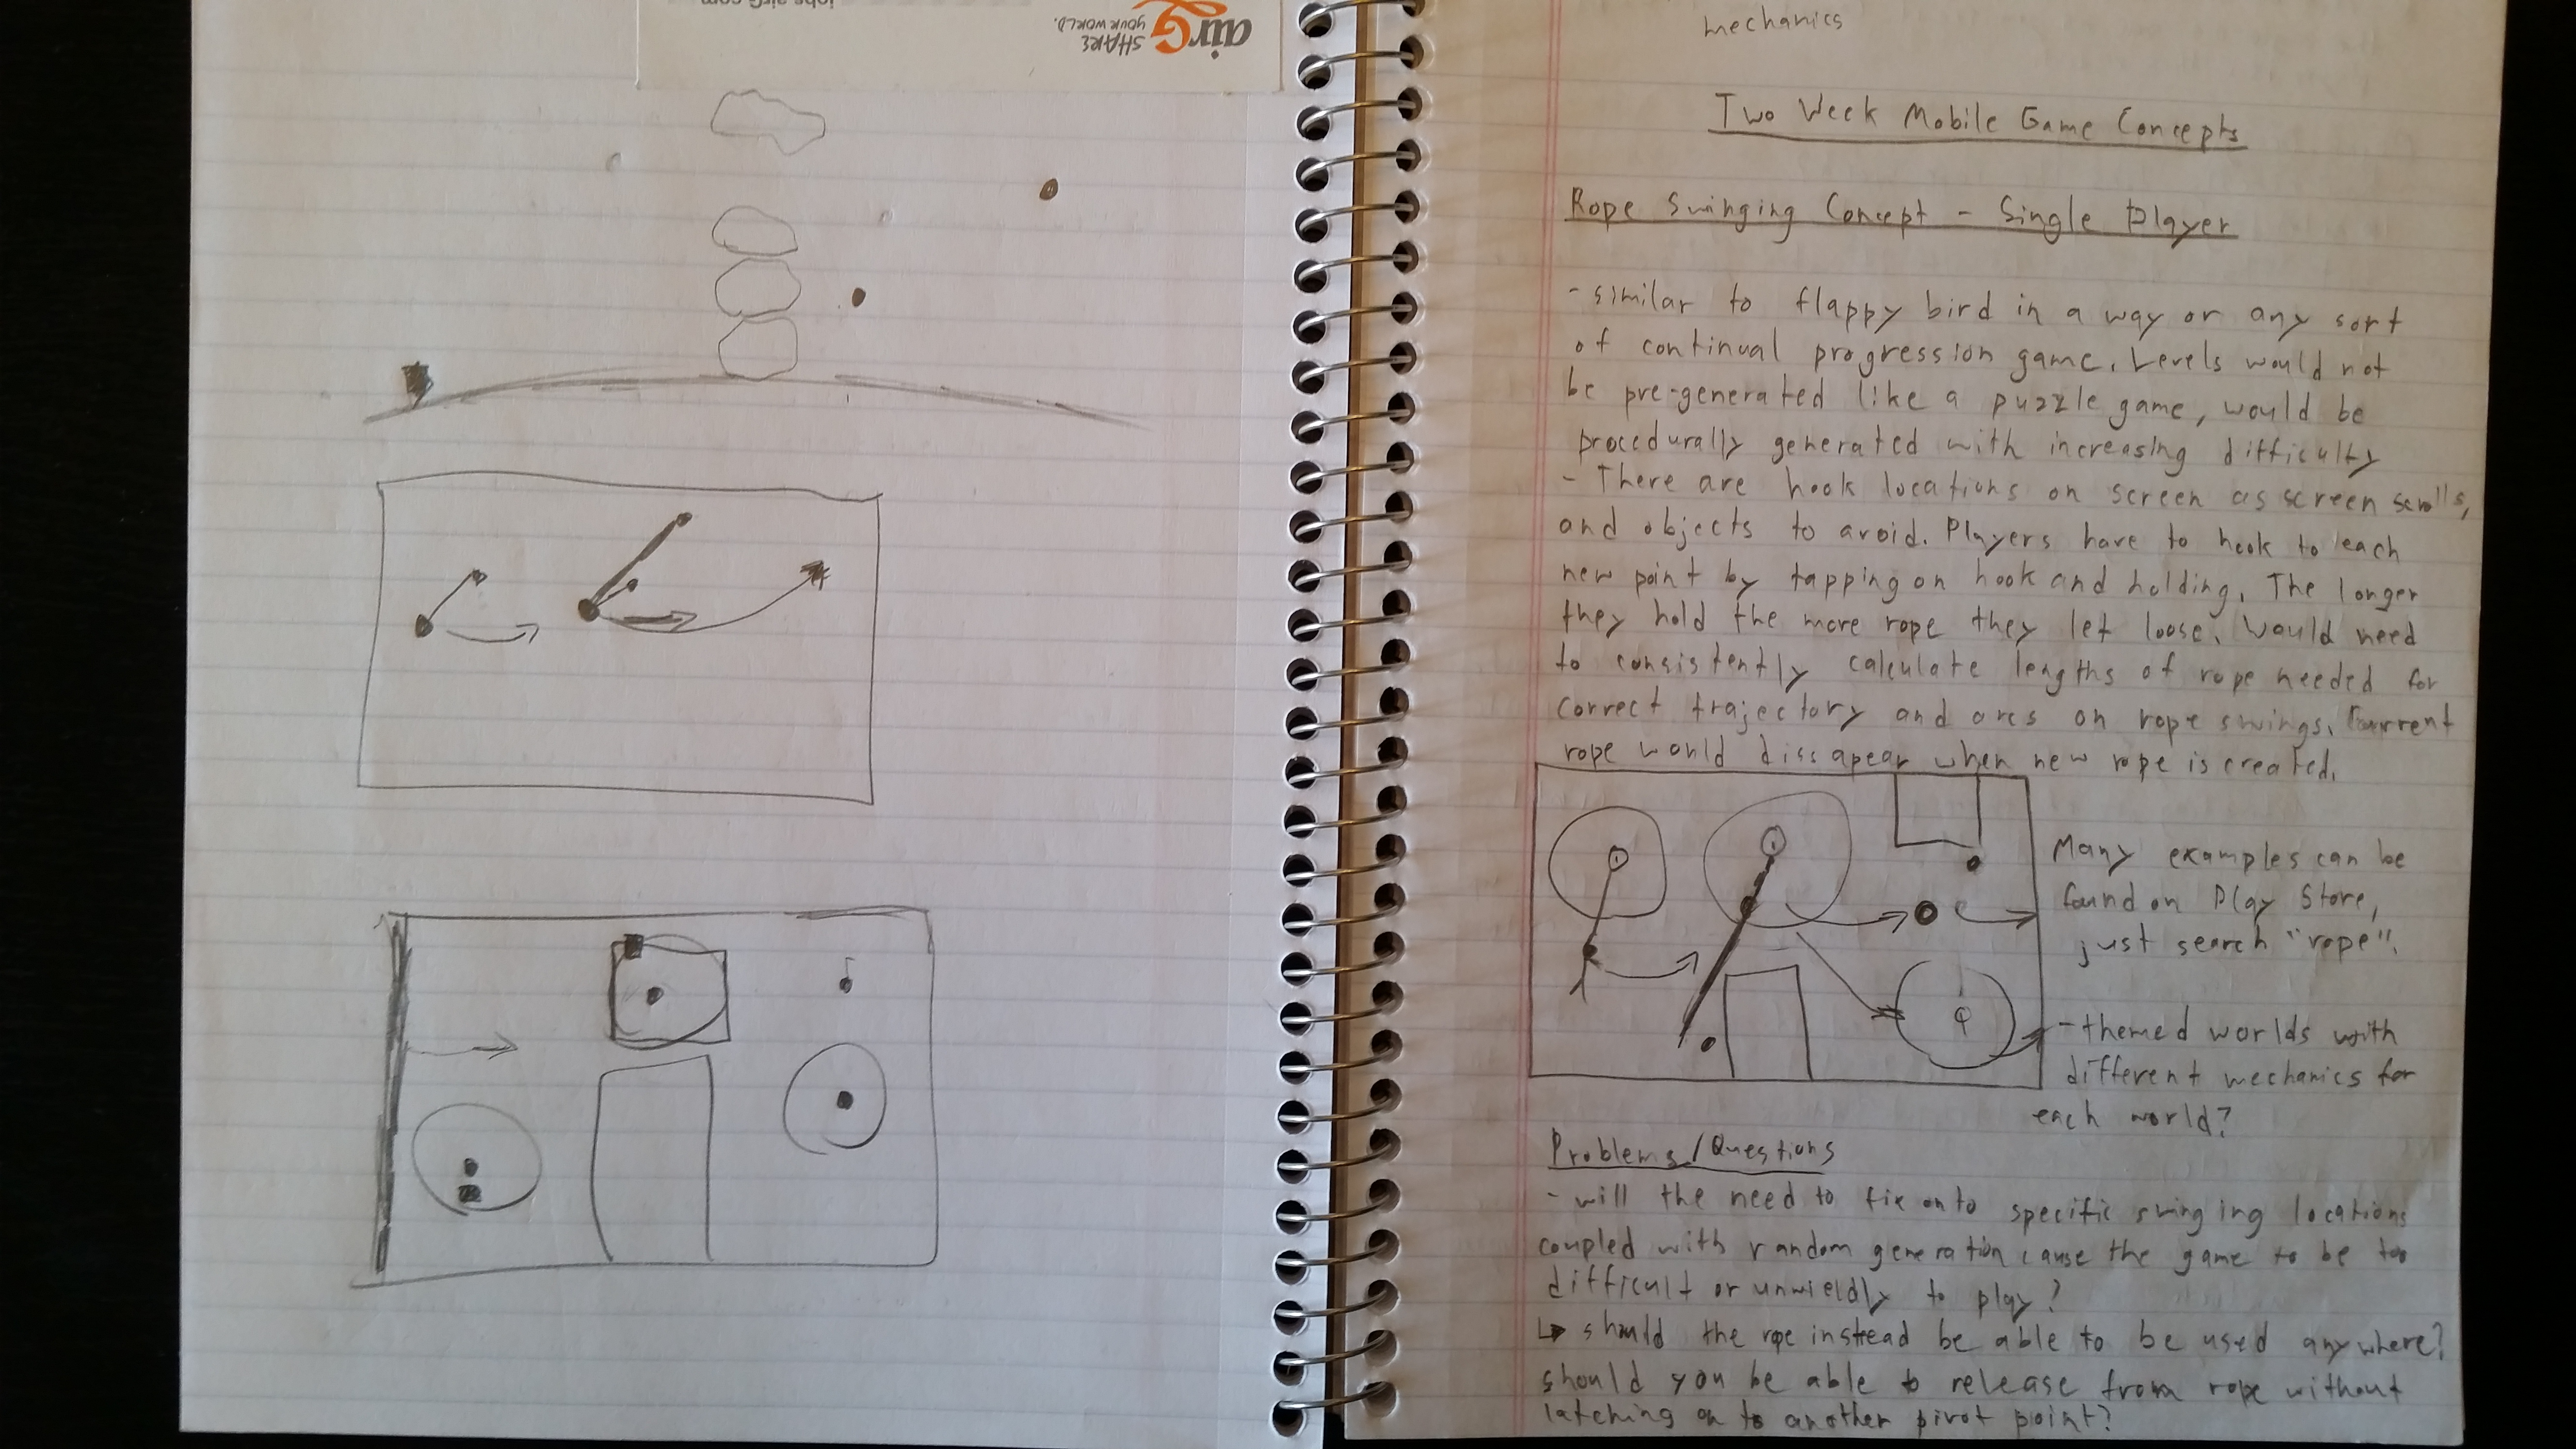 jobs.airG.com
airG
SHARE
YOUR WORLD.
mechanics
Two Week Mobile Game Concepts
Rope Swinging Concept - Single Player
- similar to flappy bird in a way or any sort
of continual progression game. Levels would not
be pre-generated like a puzzle game, would be
procedurally generated with increasing difficulty
- There are hook locations on screen as screen scrolls,
and objects to avoid. Players have to hook to each
new point by tapping on hook and holding. The longer
they hold the more rope they let loose. Would need
to consistently calculate lengths of rope needed for
correct trajectory and arcs on rope swings. Current
rope would dissapear when new rope is created.
Many examples can be
found on Play Store,
just search "rope".
- themed worlds with
different mechanics for
each world?
Problems/Questions
- will the need to fix onto specific swinging locations
coupled with random generation cause the game to be too
difficult or unwieldly to play?
↳ should the rope instead be able to be used anywhere?
should you be able to release from rope without
latching on to another pivot point?